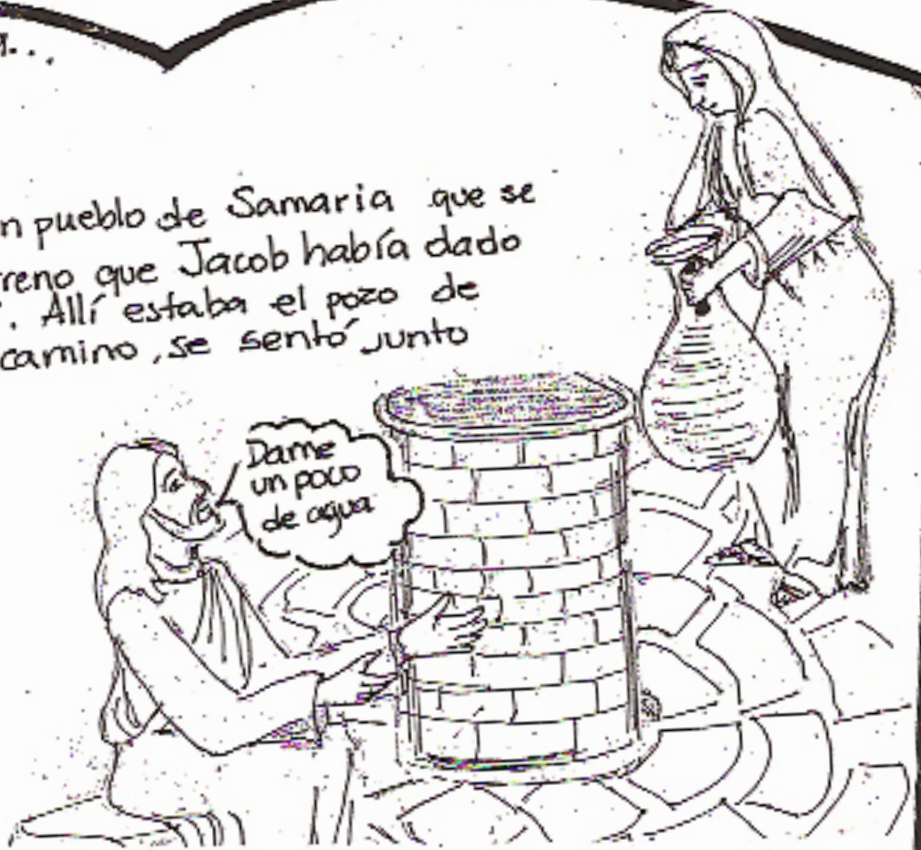 n pueblo de Samaria que se
reno que Jacob había dado
. Allí estaba el pozo de
camino, se sentó junto
Dame
un poco
de agua